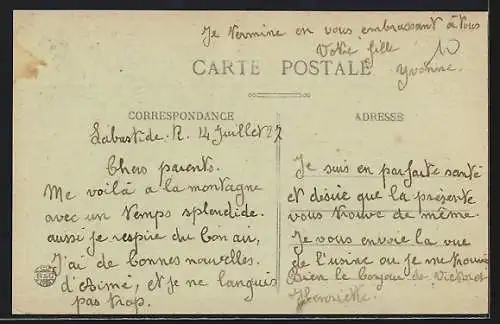 Je termine en vous embrassant à tous
Votre fille
Yvonne.
10
CARTE POSTALE
CORRESPONDANCE
Labastide-R. 14 Juillet 27
Chers parents.
Me voilà a la montagne
avec un temps splendide.
aussi je respire du bon air,
J'ai de bonnes nouvelles.
d'Aimé, et je ne languis
pas trop.
ADRESSE
Je suis en parfaite santé
et désire que la présente
vous trouve de même.
Je vous envoie la vue
de l'usine ou je me trouve
Bien le bonjour de Victor et
Henriette.